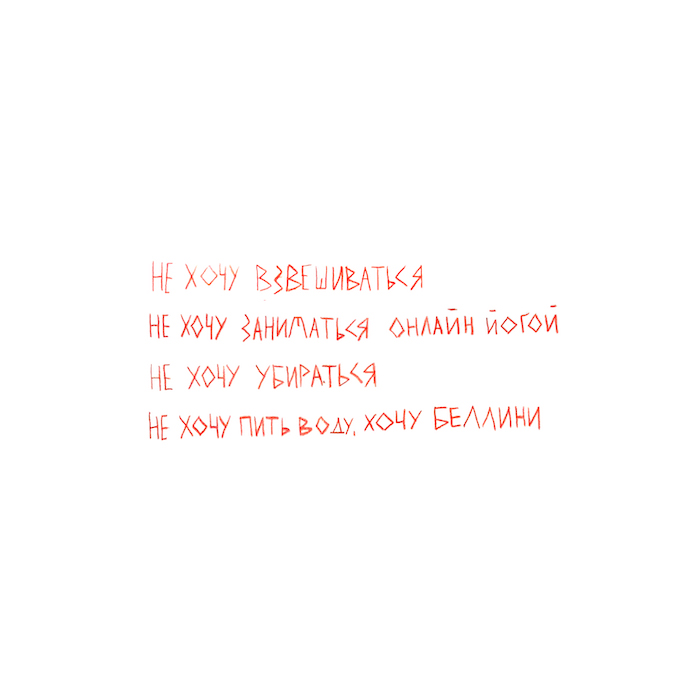 НЕ ХОЧУ ВЗВЕШИВАТЬСЯ
НЕ ХОЧУ ЗАНИМАТЬСЯ ОНЛАЙН ЙОГОЙ
НЕ ХОЧУ УБИРАТЬСЯ
НЕ ХОЧУ ПИТЬ ВОДУ, ХОЧУ БЕЛЛИНИ